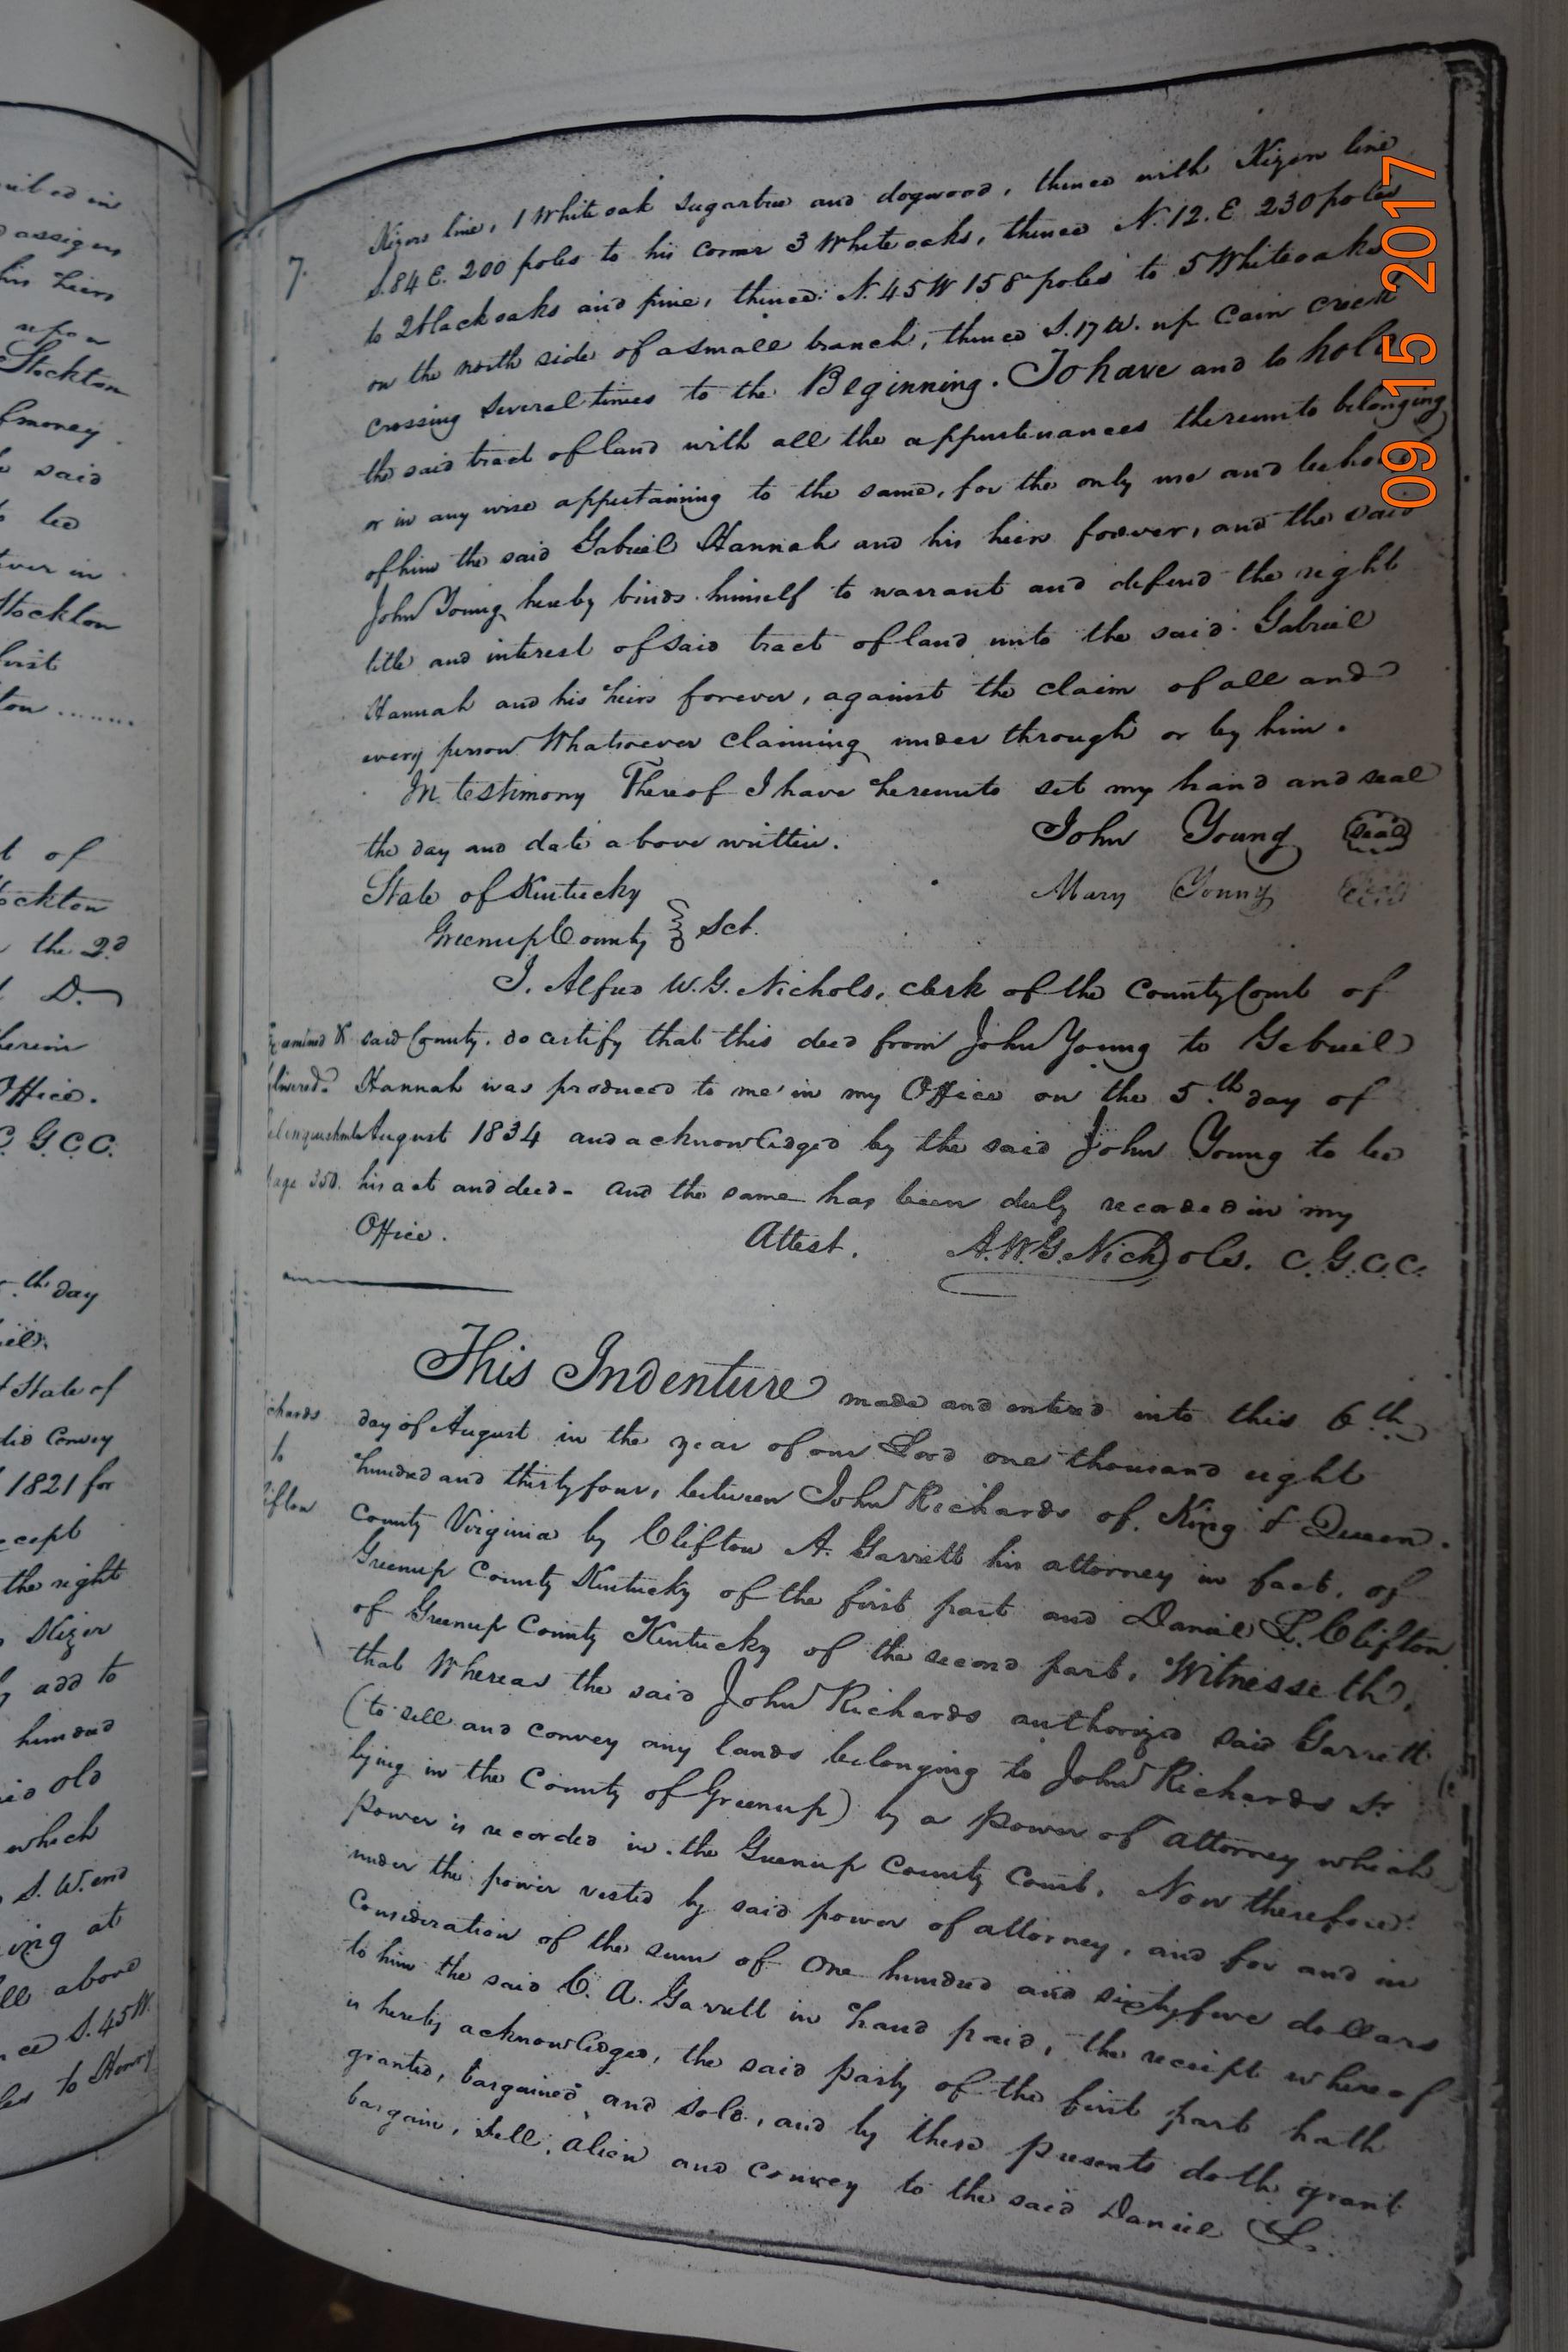 uil ed in
assigns
his heirs
upon
Stockton
of money
said
to be
ever in
Stockton
first
ton .......
of
Stockton
the 2d
D.
herein
Office.
C. G.C.C.
th day
State of
did Convey
1821 for
except
the right
Nizer
add to
hundred
said old
which
S. W. end
ing at
all above
ce S. 45 W.
les to Henry
7.
Nizers line, 1 White oak sugartree and dogwood, thence with Nizers line
S. 84 E. 200 poles to his corner 3 White oaks, thence N. 12. E 230 poles
to 2 black oaks and pine, thence N. 45 W 158 poles to 5 White oaks
on the north side of a small branch, thence S. 17 W. up Cain creek
crossing several times to the Beginning. To have and to hold
the said tract of land with all the appurtenances thereunto belonging
or in any wise appertaining to the same, for the only use and behoof
of him the said Gabriel Hannah and his heirs forever, and the said
John Young hereby binds himself to warrant and defend the right
title and interest of said tract of land unto the said Gabriel
Hannah and his heirs forever, against the claim of all and
every person Whatsoever claiming under through or by him.
In testimony Thereof I have hereunto set my hand and seal
the day and date above written. John Young Seal
State of Kentucky Mary Young Seal
Greenup County Sct.
I. Alfred W. G. Nichols, clerk of the County Court of
Examined & said County. do certify that this deed from John Young to Gebriel
delivered. Hannah was produced to me in my Office on the 5th day of
Relinquishment August 1834 and acknowledged by the said John Young to be
page 350. his act and deed. and the same has been duly recorded in my
Office. Attest. A. W. G. Nichols. C. G. C. C.
This Indenture made and entered into this 6th
Richards day of August in the year of our Lord one thousand eight
to hundred and thirty four, between John Richards of King & Queen
Clifton County Virginia by Clifton A. Garrett his attorney in fact, of
Greenup County Kentucky of the first part and Daniel L. Clifton
of Greenup County Kentucky of the second part, Witnesseth,
that Whereas the said John Richards authorized said Garrett
(to sell and convey any lands belonging to John Richards Sr
lying in the County of Greenup) by a power of attorney which
power is recorded in the Greenup County Court. Now therefore
under the power vested by said power of attorney, and for and in
Consideration of the sum of One hundred and sixty five dollars
to him the said C. A. Garrett in hand paid, the receipt whereof
is hereby acknowledged, the said party of the first part hath
granted, bargained and sold, and by these presents doth grant
bargain, Sell, alien and convey to the said Daniel L.
09 15 2017